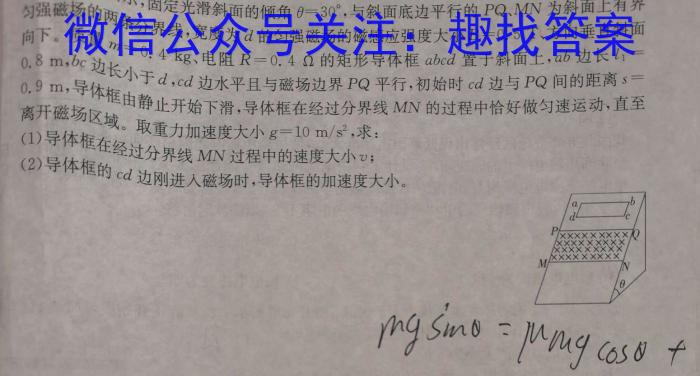 示,固定光滑斜面的倾角 θ=30°,与斜面底边平行的 PQ、MN 为斜面上有界
匀强磁场的两条分界线,宽度为 d 的匀强磁场的磁感应强度大
向下。
微信公众号关注:趣找答案
kg、电阻 R=0.4 Ω 的矩形导体框 abcd 置于斜面上,ab 边长
0.8 m,bc 边长小于 d,cd 边水平且与磁场边界 PQ 平行,初始时 cd 边与 PQ 间的距离 s=
0.9 m,导体框由静止开始下滑,导体框在经过分界线 MN 的过程中恰好做匀速运动,直至
离开磁场区域。取重力加速度大小 g=10 m/s²,求:
(1)导体框在经过分界线 MN 过程中的速度大小 v;
(2)导体框的 cd 边刚进入磁场时,导体框的加速度大小。
a b
d c
P Q
M N
θ
mg sinθ = μmg cosθ +